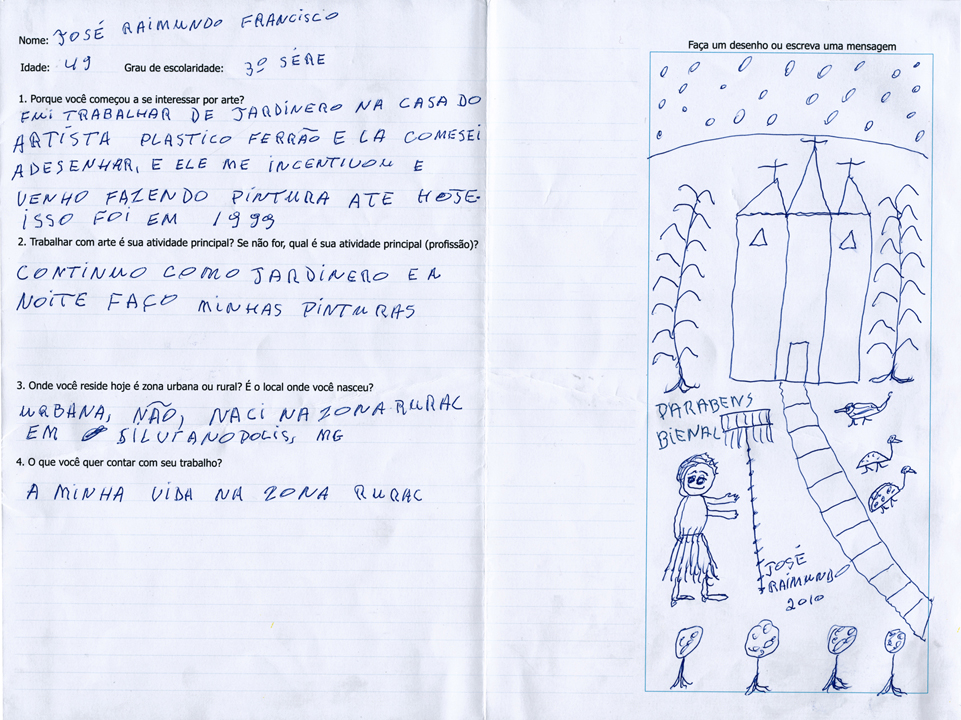 Nome: JOSÉ RAIMUNDO FRANCISCO
Idade: 49 Grau de escolaridade: 3º SÉRE
1. Porque você começou a se interessar por arte?
FUI TRABALHAR DE JARDINERO NA CASA DO
ARTISTA PLASTICO FERRÃO E LA COMESEI
ADESENHAR, E ELE ME INCENTIVOU E
VENHO FAZENDO PINTURA ATE HOJE.
ISSO FOI EM 1999
2. Trabalhar com arte é sua atividade principal? Se não for, qual é sua atividade principal (profissão)?
CONTINUO COMO JARDINERO E A
NOITE FAÇO MINHAS PINTURAS
3. Onde você reside hoje é zona urbana ou rural? É o local onde você nasceu?
URBANA, NÃO, NACI NA ZONA RURAL
EM SILVIANOPOLIS, MG
4. O que você quer contar com seu trabalho?
A MINHA VIDA NA ZONA RURAL
Faça um desenho ou escreva uma mensagem
PARABENS
BIENAL
JOSÉ
RAIMUNDO
2010